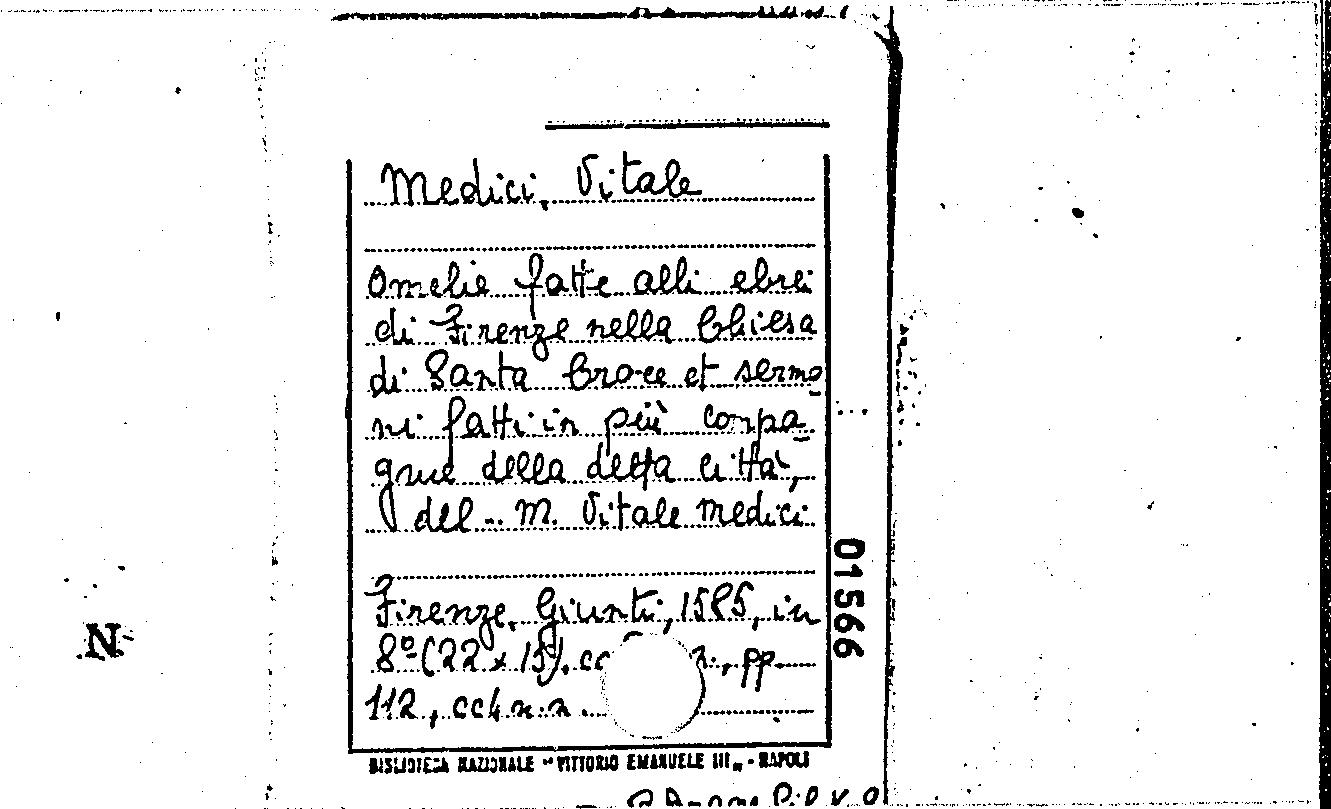 Medici, Vitale
Omelie fatte alli ebrei
di Firenze nella Chiesa
di Santa Croce et sermo
ni fatti in più compa
gnie della detta città,
del.. M. Vitale Medici
Firenze, Giunti, 1585, in
8º (22 x 15), cc n., pp.
112, cc4 n.n.
01566
N
BIBLIOTECA NAZIONALE "VITTORIO EMANUELE III" - NAPOLI